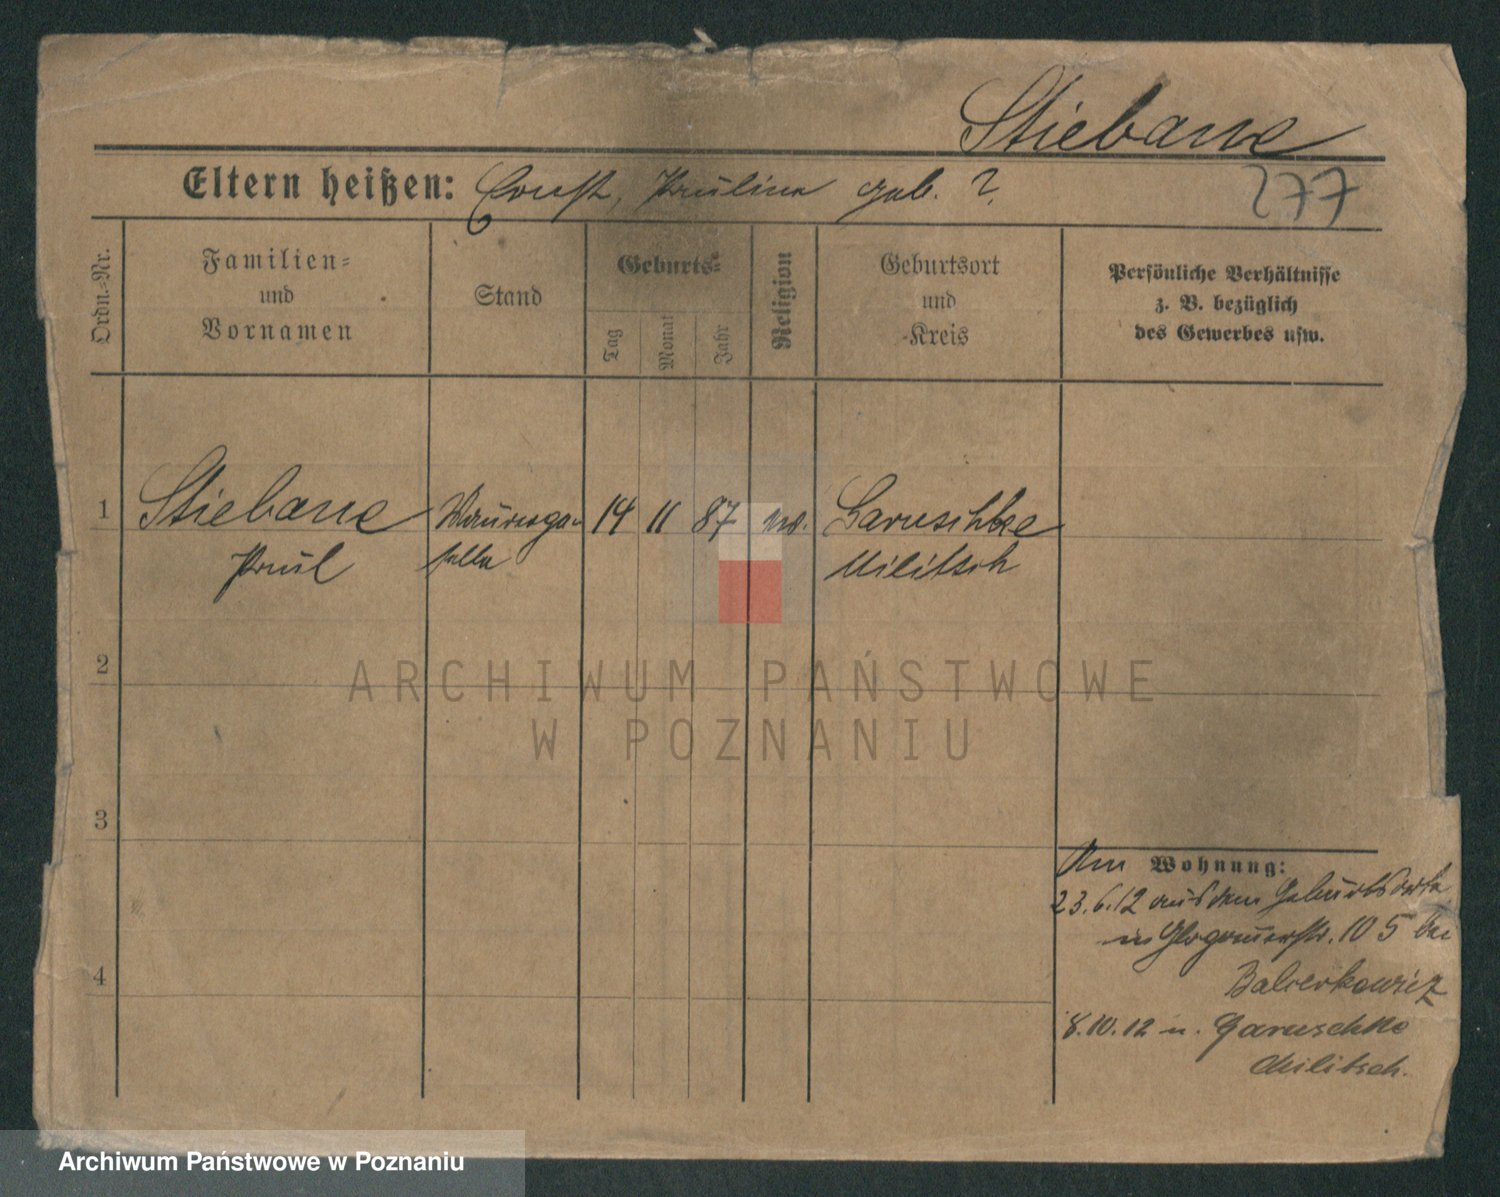 Stiebane
Eltern heißen: Ernst, Pauline geb. ?
277
Ordn.-Nr.
Familien-
und
Vornamen
Stand
Geburts-
Tag
Monat
Jahr
Religion
Geburtsort
und
Kreis
Persönliche Verhältnisse
z. B. bezüglich
des Gewerbes usw.
1 Stiebane Maurerge- 14 11 87 ev. Garuschke
Paul selle Militsch
2
3
4
Am Wohnung:
23.6.12 aus dem Geburtsorte
in Glogauerstr. 105 bei
8.10.12 n. Garuschke
Militsch.
ARCHIWUM PAŃSTWOWE
W POZNANIU
Archiwum Państwowe w Poznaniu